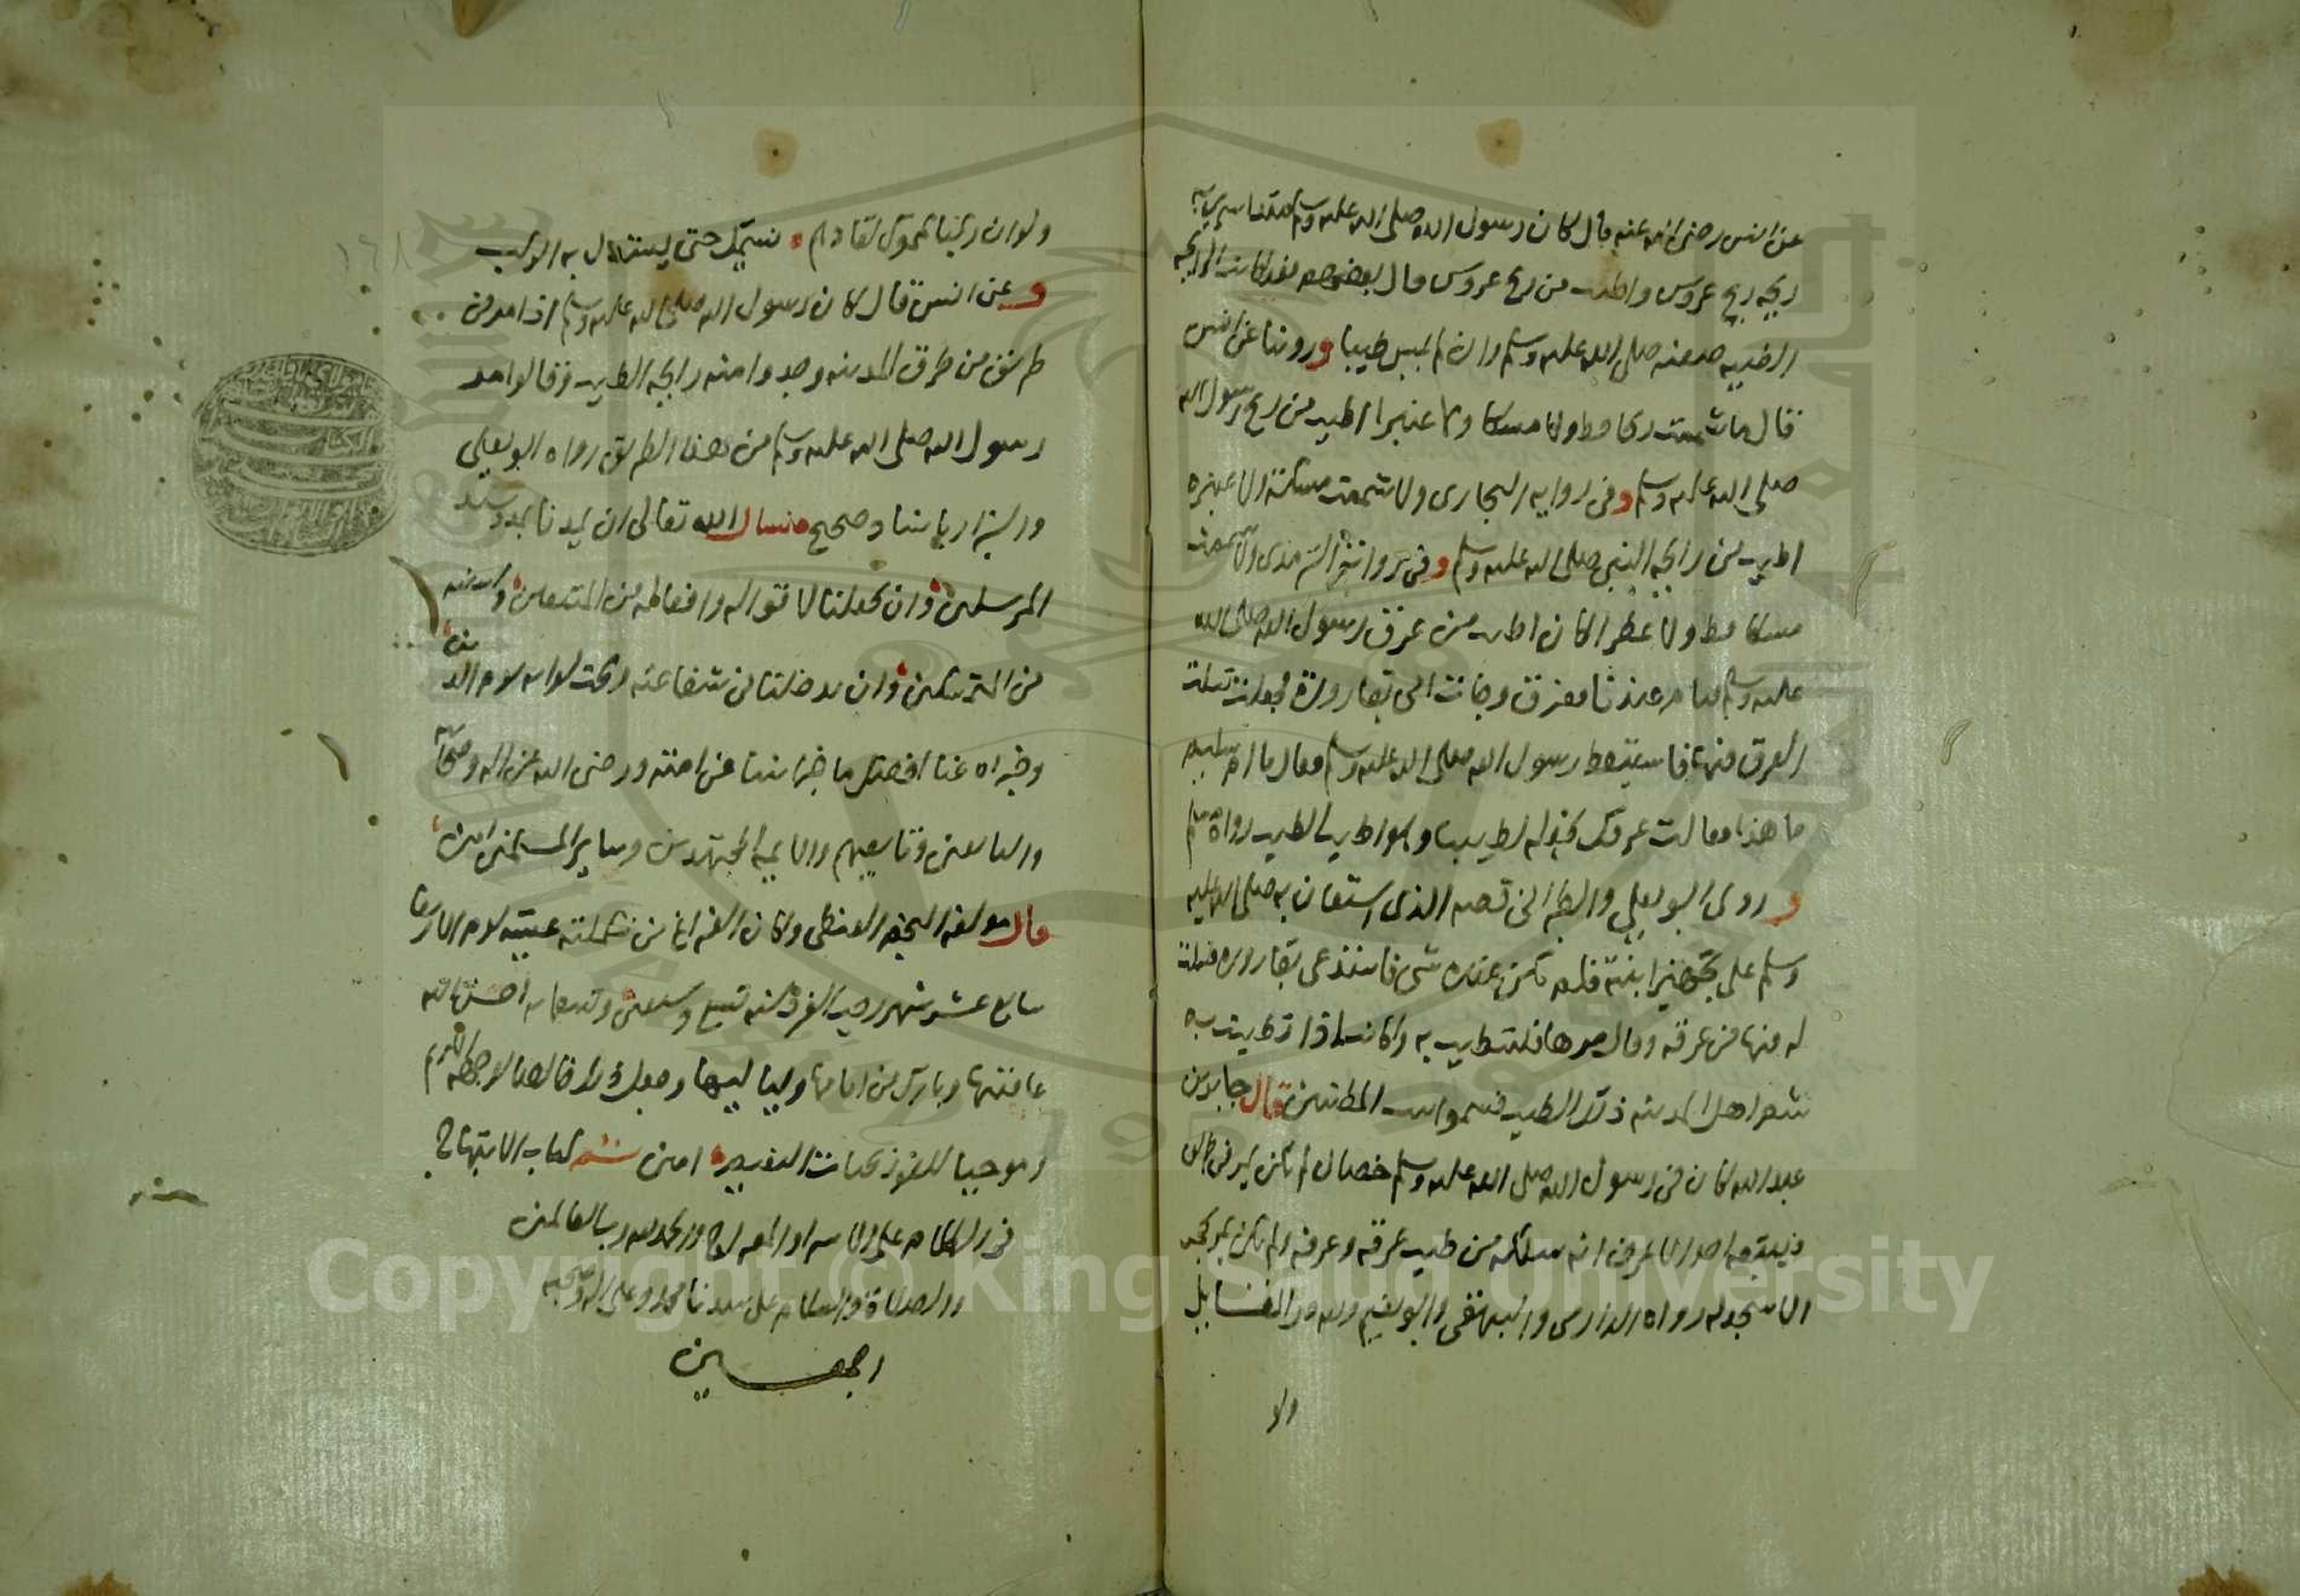 عن انس رضى الله عنه قال كان رسول الله صلى الله عليه وسلم منذ اسرى به
ريحه ريح عروس واطيب من ريح عروس قال بعضهم فقد كانت الرايحه
الطيبه صفته صلى الله عليه وسلم وان لم يمس طيبا وروينا عن انس
قال ما شممت ريحا قط ولا مسكا ولا عنبرا اطيب من ريح رسول الله
صلى الله عليه وسلم وفى روايه البخارى ولا شممت مسكة ولا عنبره
اطيب من رايحه النبى صلى الله عليه وسلم وفى رواية الترمذى ولا شممت
مسكا قط ولا عطرا كان اطيب من عرق رسول الله صلى الله
عليه وسلم نام عندنا فعرق وجات امى بقارورة فجعلت تسلت
العرق فيها فاستيقظ رسول الله صلى الله عليه وسلم فقال يا ام سليم
ما هذا فقالت عرقك نجعله لطيبنا وهو اطيب الطيب رواه مسلم
وروى ابو يعلى والطبرانى قصه الذى استعان به صلى الله عليه
وسلم على تجهيز ابنته فلم يكن عنده شى فاستدعى بقاروره فسلت
له فيها من عرقه وقال مرها فلتطيب به وكانت اذا تطيبت به
شم اهل المدينه ذلك الطيب فسموا بيت المطيبين قال جابر بن
عبد الله كان فى رسول الله صلى الله عليه وسلم خصال لم يكن يمر فى طريق
فيتبعه احد الا عرف انه سلكه من طيب عرقه وعرفه ولم يكن يمر بحجر
الا سجد له رواه الدارمى والبيهقى وابو نعيم ولله در القايل
ولو
ولو ان ركبا يمموك لقادهم نسيمك حتى يستدل به الركب
وعن انس قال كان رسول الله صلى الله عليه وسلم اذا مر فى
طريق من طرق المدينه وجدوا منه رايحه الطيب وقالوا مر
رسول الله صلى الله عليه وسلم من هذا الطريق رواه ابو يعلى
والبزار باسناد صحيح نسال الله تعالى ان يمدنا بمدد سيد
المرسلين وان يجعلنا لاقواله وافعاله من المتبعين وبسنته
من المتمسكين وان يدخلنا فى شفاعته وتحت لوايه يوم الدين
وجزاه عنا افضل ما جزا نبيا عن امته ورضى الله عن اله وصحابته
والتابعين وتابعيهم والايمة المجتهدين وساير المسلمين امين
قال مولفه النجم الغيطى وكان الفراغ من تكملته عشية يوم الاربعا
سابع عشر شهر رجب الفرد سنه تسع وستين وتسعمايه احسن الله
عاقبتها وبارك فى ايامها ولياليها وجعل ذلك خالصا لوجهه الكريم
وموجبا للفوز بجنات النعيم امين تم كتاب الابتهاج
فى الكلام على الاسرا والمعراج والحمد لله رب العالمين
والصلاة والسلام على سيدنا محمد وعلى اله وصحبه
اجمعين
Copyright © King Saud University